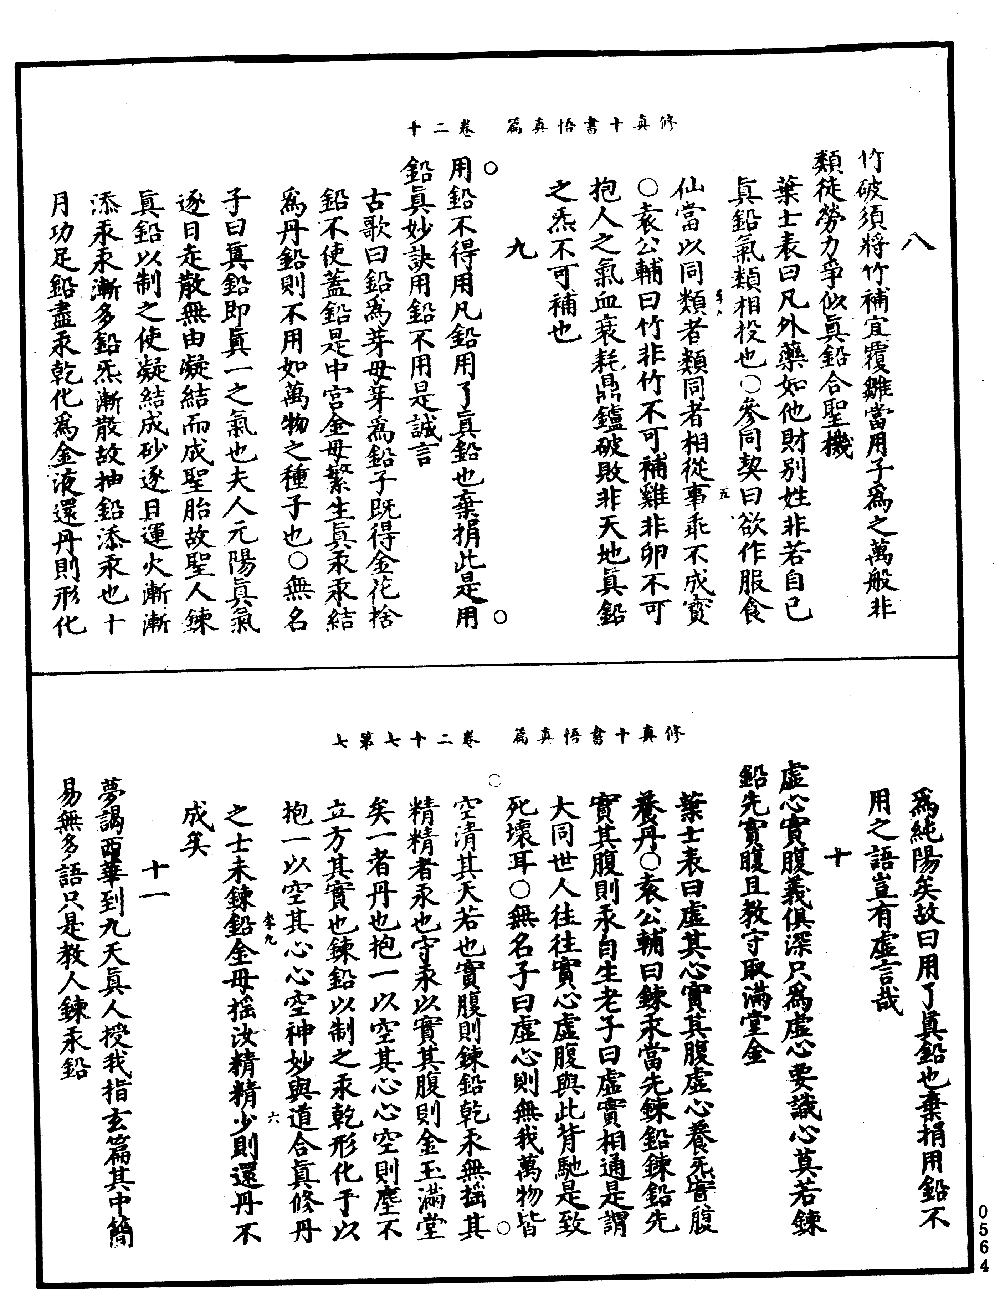 修真十書悟真篇　卷二十
八
竹破須將竹補宜覆雞當用子為之萬般非
類徒勞力爭似真鉛合聖機
葉士表曰凡外藥如他財别姓非若自己
真鉛氣類相投也○參同契曰欲作服食
仙當以同類者類同者相從事乖不成寳
○袁公輔曰竹非竹不可補雞非卵不可
抱人之氣血衰耗鼎鑪破敗非天地真鉛
之炁不可補也
九
用鉛不得用凡鉛用了真鉛也棄捐此是用
鉛真妙訣用鉛不用是誠言
古歌曰鉛為芽母芽為鉛子既得金花捨
鉛不使蓋鉛是中宮金母繁生真汞汞結
為丹鉛則不用如萬物之種子也○無名
子曰真鉛即真一之氣也夫人元陽真氣
逐日走散無由凝結而成聖胎故聖人鍊
真鉛以制之使凝結成砂逐日運火漸漸
添汞汞漸多鉛炁漸散故抽鉛添汞也十
月功足鉛盡汞乾化為金液還丹則形化
修真十書悟真篇　卷二十七第七
為純陽矣故曰用了真鉛也棄捐用鉛不
用之語豈有虛言哉
十
虛心實腹義俱深只為虛心要識心莫若鍊
鉛先實腹且教守取滿堂金
葉士表曰虛其心實其腹虛心養炁實腹
養丹○袁公輔曰鍊汞當先鍊鉛鍊鉛先
實其腹則汞自生老子曰虛實相通是謂
大同世人往往實心虛腹與此背馳是致
死壞耳○無名子曰虛心則無我萬物皆
空清其天若也實腹則鍊鉛乾汞無搖其
精精者汞也守汞以實其腹則金玉滿堂
矣一者丹也抱一以空其心心空則塵不
立方其實也鍊鉛以制之汞乾形化于以
抱一以空其心心空神妙與道合真修丹
之士未鍊鉛金母摇汝精精少則還丹不
成矣
十一
夢謁西華到九天真人授我指玄篇其中簡
易無多語只是教人鍊汞鉛
0564